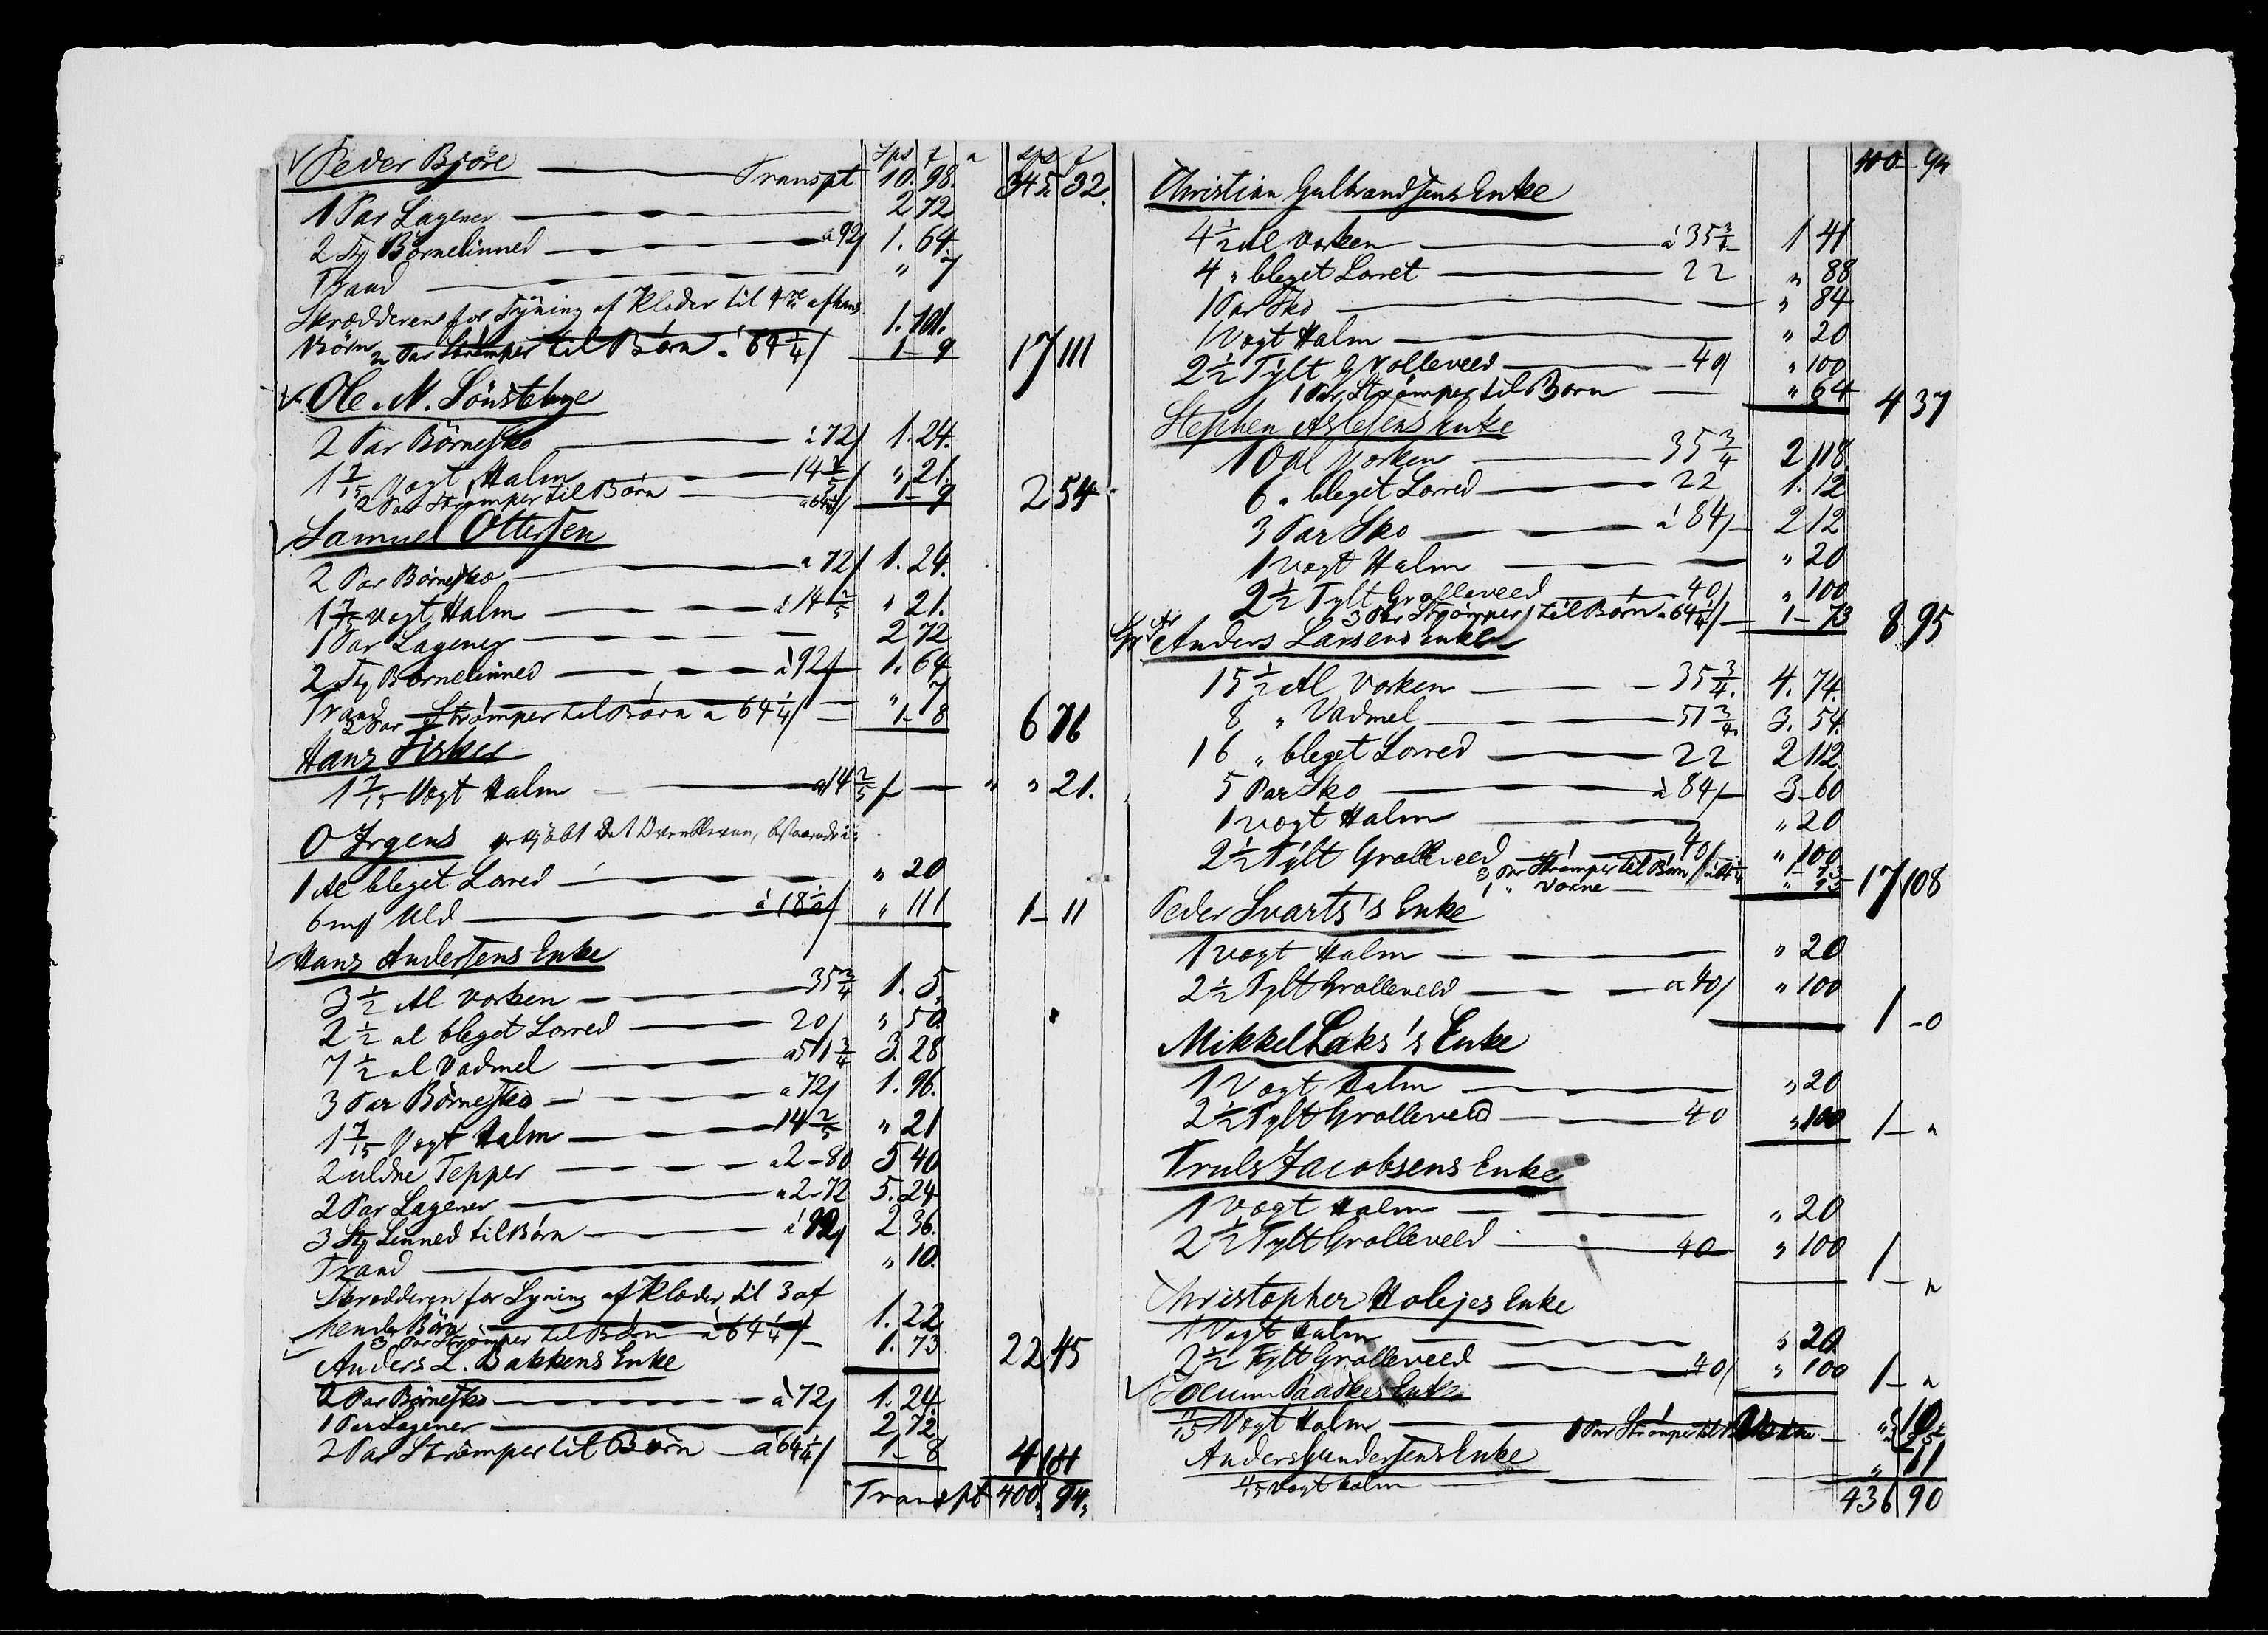 Sps ſ " Sps ſ
Peder Björe — Transpt 10. 98. 345. 32.
1 Par Lagener — 2 72
2 Stÿ Börnelinned — a 92ſ 1. 64.
Traad — " 7
Skrædderen for Syning af Klæder til 4re af hans
Börn 1. 101.
2 Par Strømper til Børn a 64 1/4ſ 1 - 9 17 111
Ole. N. Sönstebye
2 Par Börnesko — a 72ſ 1. 24.
1 7/15 Vogt Halm — 14 2/5ſ " 21.
2 Par Strømper til Børn — a 64 1/4ſ 1 - 9 2 54
Samuel Ottersen
2 Par Börnesko — a 72ſ 1. 24.
1 7/15 vogt Halm — a 14 2/5 " 21.
1 Par Lagener — 2 72
2 Stÿ Börnelinned — a 92ſ 1. 64
Traad — " 7
2 Par Strømper til Børn a 64 1/4ſ — 1 - 8 6 76
Hans Fisker
1 7/15 Vogt Halm — a 14 2/5 ſ — " " 21.
O Irgens
1 Al bleget Lerred — " 20
6 mſ Uld — a 18 1/2ſ " 111 1 - 11
Hans Andersens Enke
3 1/2 Al Vorken — 35 3/4 1. 5.
2 1/2 al bleget Lerred — 20ſ " 50.
7 1/2 al Vadmel — a 51 3/4 3. 28
3 Par Börnesko — a 72ſ 1. 96.
1 7/15 Vogt Halm — 14 2/5 " 21
2 uldne Tepper — a 2 - 80 5 40
2 Par Lagener — a 2 - 72 5. 24
3 Stÿ Linned til Børn — a 92ſ 2 36.
Traad — " 10.
Skredderen for Syning af Klæder til 3 af
hendes Børn — 1. 22
3 Par Strømper til Børn a 64 1/4ſ — 1. 73 22 45
Anders L. Bakkens Enke
2 Par Börnesko — a 72ſ 1. 24.
1 Par Lagener — 2 72
2 Par Strømper til Børn — a 64 1/4ſ 1 - 8 4 104
Transpt 400, 94,
400 94
Christian Gulbrandsens Enke
4 1/2 Al Vorken — a 35 3/4 1 41
4 " bleget Lerret — 22 " 88
1 Par Sko — " 84
1 Vogt Halm — " 20
2 1/2 Tylt Grolleveed — 40ſ " 100
1 Par Strømper til Børn — " 64 4 37
Stephen Aslesens Enke
10 Al Vorken — 35 3/4 2 118.
6 " bleget Lerred — 22 1. 12
3 Par Sko — a 84ſ 2 12
1 vogt Halm — " 20
2 1/2 Tylt Grolleveed — 40ſ " 100
3 Par Strømper til Børn a 64 1/4ſ — 1 - 73 8 95
Anders Larsens Enke
15 1/2 Al Vorken — 35 3/4. 4. 74.
8 " Vadmel — 51 3/4 3. 54.
16 " bleget Lerred — 22 2 112.
5 Par Sko — a 84ſ 3 - 60
1 vogt Halm — " 20
2 1/2 Tylt Grolleveed — 40ſ " 100
3 Par Strømper til Børn 1 - 73
1 " Voxne — 17 108
Peder Svarts's Enke
1 vogt Halm — " 20
2 1/2 Tylt Grolleveed — a 40ſ " 100
1 - 0
Mikkel Laks's Enke
1 Vogt Halm — " 20
2 1/2 Tylt Grolleveed — 40 " 100 1 - "
Truls Jacobsens Enke
1 Vogt Halm — " 20
2 1/2 Tylt Grolleveed — 40 " 100 1 - "
Christopher Holejes Enke
1 Vogt Halm — " 20
2 1/2 Tylt Grolleveed — 40ſ " 100 1 - "
Paaskes Enke
11/15 Vogt Halm — 1 Par Strømper til
Anders Gundersens Enke
11/15 Vogt Halm — " 11
436 90